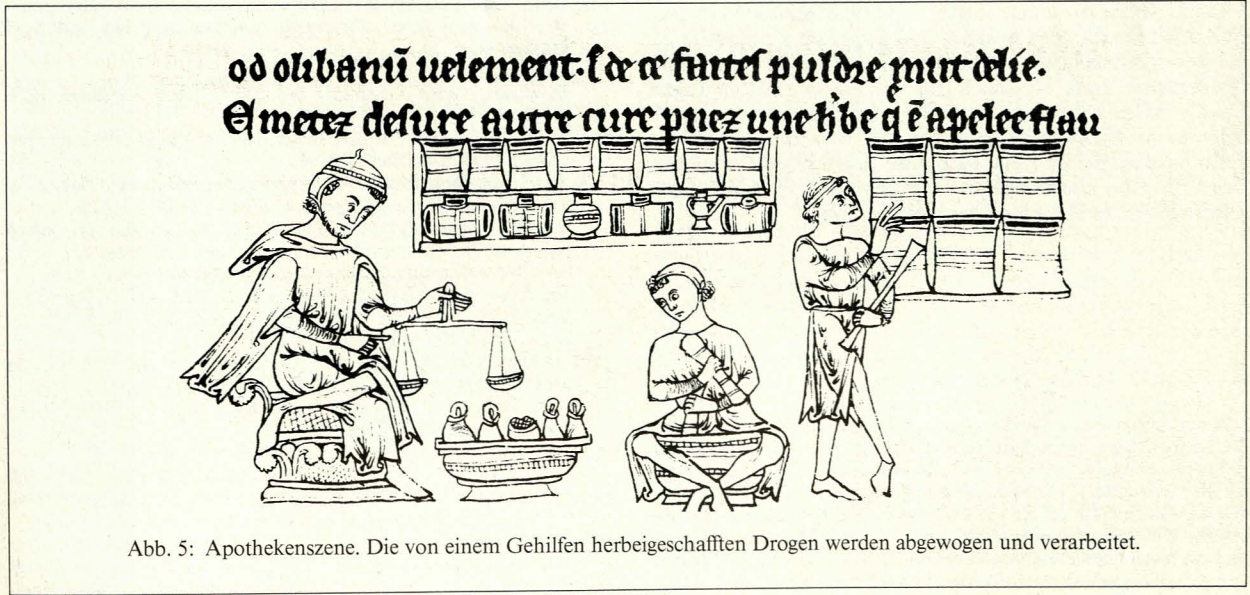 od olibanū uelement. de ce faites puldre mut delie.
E metez desure autre cure pnez une hbe q ē apelee flau
Abb. 5: Apothekenszene. Die von einem Gehilfen herbeigeschafften Drogen werden abgewogen und verarbeitet.